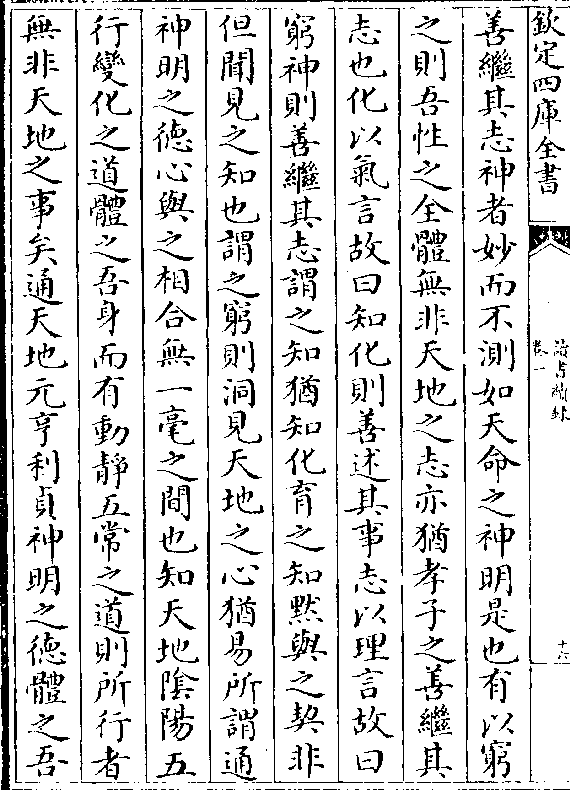 欽定四庫全書
讀書續錄
卷一
十六
善繼其志神者妙而不測如天命之神明是也有以窮
之則吾性之全體無非天地之志亦猶孝子之善繼其
志也化以氣言故曰知化則善述其事志以理言故曰
窮神則善繼其志謂之知猶知化育之知黙與之契非
但聞見之知也謂之窮則洞見天地之心猶易所謂通
神明之德心與之相合無一毫之間也知天地陰陽五
行變化之道體之吾身而有動靜五常之道則所行者
無非天地之事矣通天地元亨利貞神明之德體之吾